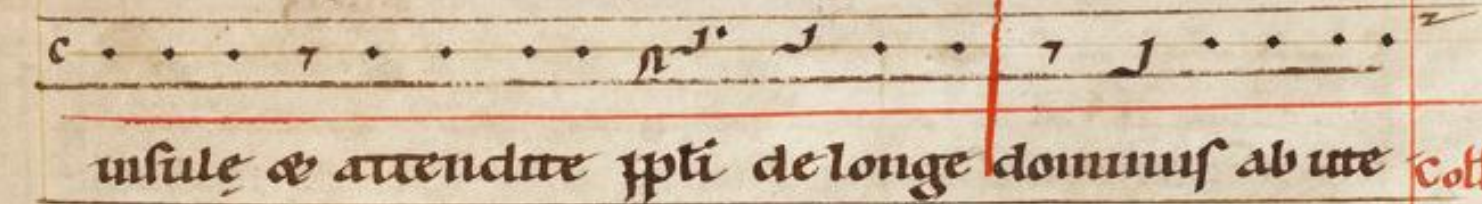 insulę & attendite ppłi de longe dominus ab ute
Coł